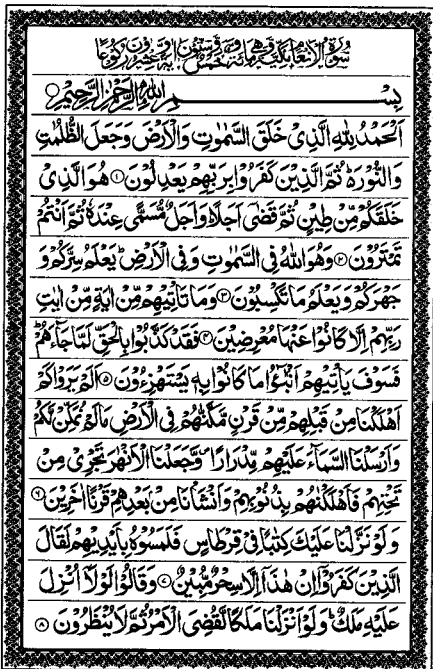 سُوْرَةُ الْاَنْعَامِ مَكِّيَّةٌ وَّهِيَ مِائَةٌ وَّخَمْسٌ وَّسِتُّوْنَ اٰيَةً وَّعِشْرُوْنَ رُكُوْعًا
بِسْمِ اللّٰهِ الرَّحْمٰنِ الرَّحِيْمِ ○
اَلْحَمْدُ لِلّٰهِ الَّذِیْ خَلَقَ السَّمٰوٰتِ وَالْاَرْضَ وَجَعَلَ الظُّلُمٰتِ
وَالنُّوْرَ ۬ؕ ثُمَّ الَّذِیْنَ كَفَرُوْا بِرَبِّهِمْ یَعْدِلُوْنَ ۝۱ هُوَ الَّذِیْ
خَلَقَكُمْ مِّنْ طِیْنٍ ثُمَّ قَضٰۤی اَجَلًا ؕ وَاَجَلٌ مُّسَمًّی عِنْدَهٗ ثُمَّ اَنْتُمْ
تَمْتَرُوْنَ ۝۲ وَهُوَ اللّٰهُ فِی السَّمٰوٰتِ وَفِی الْاَرْضِ ؕ یَعْلَمُ سِرَّكُمْ وَ
جَهْرَكُمْ وَیَعْلَمُ مَا تَكْسِبُوْنَ ۝۳ وَمَا تَاْتِیْهِمْ مِّنْ اٰیَةٍ مِّنْ اٰیٰتِ
رَبِّهِمْ اِلَّا كَانُوْا عَنْهَا مُعْرِضِیْنَ ۝۴ فَقَدْ كَذَّبُوْا بِالْحَقِّ لَمَّا جَآءَهُمْ ؕ
فَسَوْفَ یَاْتِیْهِمْ اَنْۢبٰٓؤُا مَا كَانُوْا بِهٖ یَسْتَهْزِءُوْنَ ۝۵ اَلَمْ یَرَوْا كَمْ
اَهْلَكْنَا مِنْ قَبْلِهِمْ مِّنْ قَرْنٍ مَّكَّنّٰهُمْ فِی الْاَرْضِ مَا لَمْ نُمَكِّنْ لَّكُمْ
وَاَرْسَلْنَا السَّمَآءَ عَلَیْهِمْ مِّدْرَارًا ۪ وَّجَعَلْنَا الْاَنْهٰرَ تَجْرِیْ مِنْ
تَحْتِهِمْ فَاَهْلَكْنٰهُمْ بِذُنُوْبِهِمْ وَاَنْشَاْنَا مِنْۢ بَعْدِهِمْ قَرْنًا اٰخَرِیْنَ ۝۶
وَلَوْ نَزَّلْنَا عَلَیْكَ كِتٰبًا فِیْ قِرْطَاسٍ فَلَمَسُوْهُ بِاَیْدِیْهِمْ لَقَالَ
الَّذِیْنَ كَفَرُوْۤا اِنْ هٰذَاۤ اِلَّا سِحْرٌ مُّبِیْنٌ ۝۷ وَقَالُوْا لَوْلَاۤ اُنْزِلَ
عَلَیْهِ مَلَكٌ ؕ وَلَوْ اَنْزَلْنَا مَلَكًا لَّقُضِیَ الْاَمْرُ ثُمَّ لَا یُنْظَرُوْنَ ۝۸